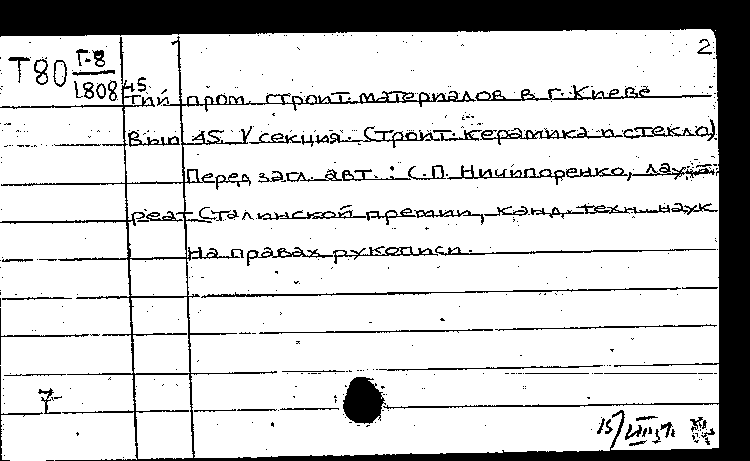 2
Т80 Г-8
1808
45
тий пром. строит. материалов в г. Киеве
Вып 45 V секция. (Строит. керамика и стекло)
Перед загл. авт.: С.П. Ничипоренко, лау-
реат Сталинской премии, канд. техн. наук
На правах рукописи.
15/VIII 57.